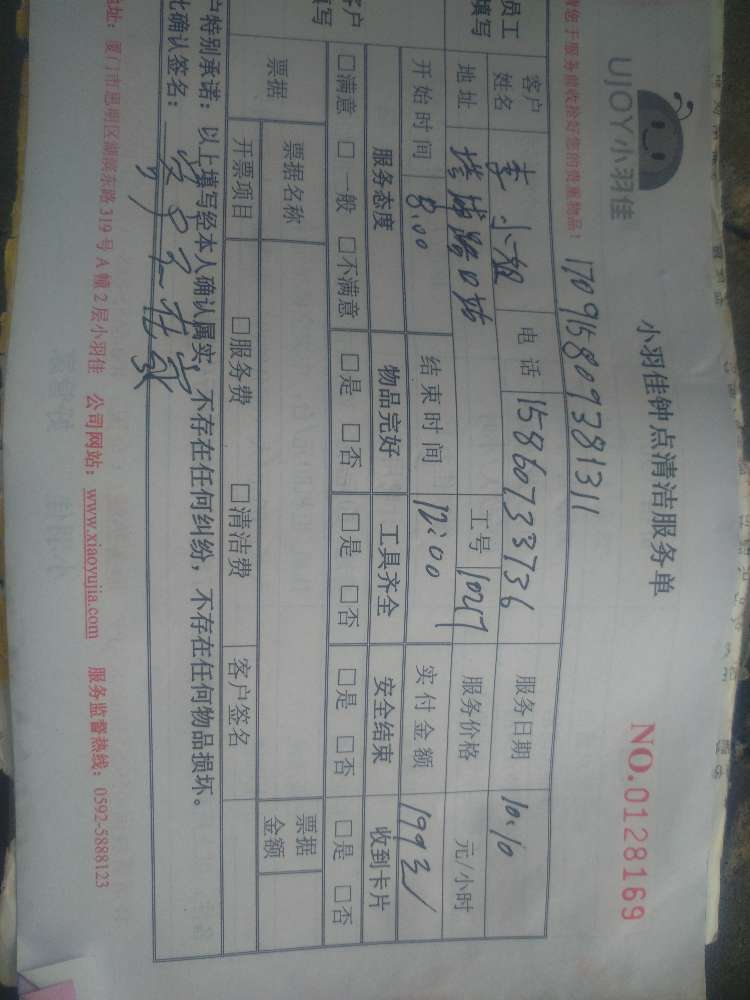 UJOY小羽佳
小羽佳钟点清洁服务单
NO.0128169
请您于服务前收拾好您的贵重物品！
170915809381311
员工
填写
客户
姓名
李小姐
电话
15860733736
服务日期
10.10
地址
工号
1027
服务价格
元/小时
开始时间
8:00
结束时间
12:00
实付金额
服务态度
物品完好
工具齐全
安全结束
收到卡片
客户
填写
□满意 □一般 □不满意
□是 □否
□是 □否
□是 □否
□是 □否
票据
票据名称
票据
金额
开票项目
□服务费
□清洁费
客户签名
户特别承诺：以上填写经本人确认属实，不存在任何纠纷，不存在任何物品损坏。
此确认签名：
地址：厦门市思明区湖滨东路319号A幢2层小羽佳 公司网站：www.xiaoyujia.com 服务监督热线：0592-5888123